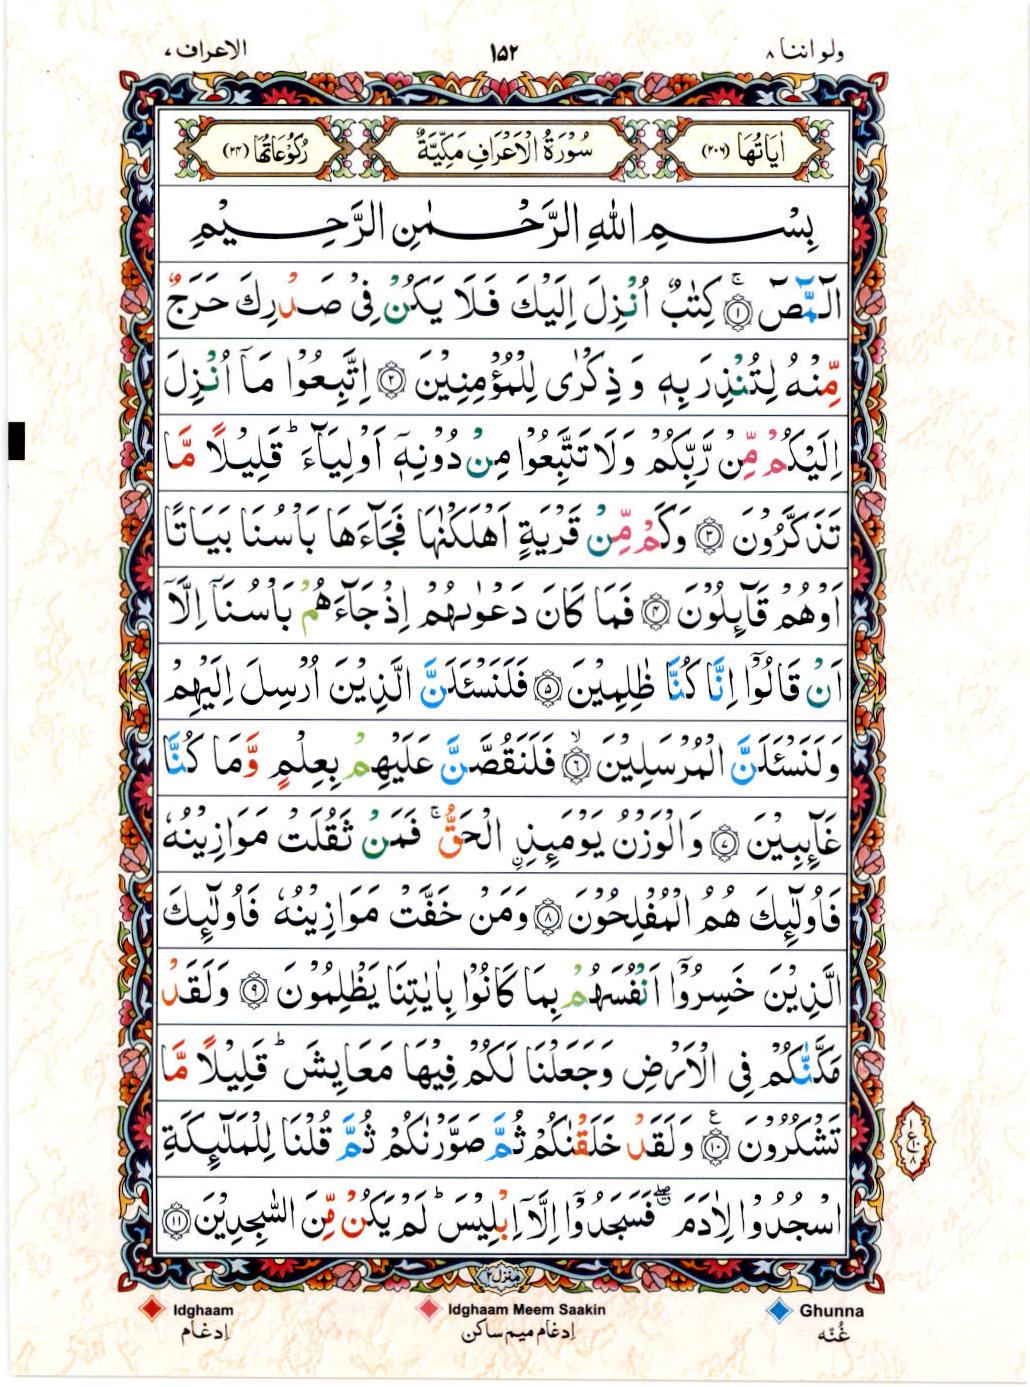 ولو اننا ٨
١٥٢
الاعراف ٧
اٰيَاتُهَا (٢٠٦)
سُوْرَةُ الْاَعْرَافِ مَكِّيَّةٌ
رُكُوْعَاتُهَا (٢٤)
بِسْمِ اللهِ الرَّحْمٰنِ الرَّحِيْمِ
الٓمّٓصٓ ۚ ﴿١﴾ كِتٰبٌ اُنْزِلَ اِلَيْكَ فَلَا يَكُنْ فِيْ صَدْرِكَ حَرَجٌ
مِّنْهُ لِتُنْذِرَ بِهٖ وَ ذِكْرٰى لِلْمُؤْمِنِيْنَ ﴿٢﴾ اِتَّبِعُوْا مَآ اُنْزِلَ
اِلَيْكُمْ مِّنْ رَّبِّكُمْ وَلَا تَتَّبِعُوْا مِنْ دُوْنِهٖٓ اَوْلِيَآءَ ؕ قَلِيْلًا مَّا
تَذَكَّرُوْنَ ﴿٣﴾ وَكَمْ مِّنْ قَرْيَةٍ اَهْلَكْنٰهَا فَجَآءَهَا بَاْسُنَا بَيَاتًا
اَوْ هُمْ قَآئِلُوْنَ ﴿٤﴾ فَمَا كَانَ دَعْوٰىهُمْ اِذْ جَآءَهُمْ بَاْسُنَآ اِلَّآ
اَنْ قَالُوْٓا اِنَّا كُنَّا ظٰلِمِيْنَ ﴿٥﴾ فَلَنَسْـَٔلَنَّ الَّذِيْنَ اُرْسِلَ اِلَيْهِمْ
وَلَنَسْـَٔلَنَّ الْمُرْسَلِيْنَ ۙ ﴿٦﴾ فَلَنَقُصَّنَّ عَلَيْهِمْ بِعِلْمٍ وَّمَا كُنَّا
غَآئِبِيْنَ ﴿٧﴾ وَالْوَزْنُ يَوْمَئِذِ ِۨالْحَقُّ ۚ فَمَنْ ثَقُلَتْ مَوَازِيْنُهٗ
فَاُولٰٓئِكَ هُمُ الْمُفْلِحُوْنَ ﴿٨﴾ وَمَنْ خَفَّتْ مَوَازِيْنُهٗ فَاُولٰٓئِكَ
الَّذِيْنَ خَسِرُوْٓا اَنْفُسَهُمْ بِمَا كَانُوْا بِاٰيٰتِنَا يَظْلِمُوْنَ ﴿٩﴾ وَلَقَدْ
مَكَّنّٰكُمْ فِي الْاَرْضِ وَجَعَلْنَا لَكُمْ فِيْهَا مَعَايِشَ ؕ قَلِيْلًا مَّا
تَشْكُرُوْنَ ﴿١٠﴾ وَلَقَدْ خَلَقْنٰكُمْ ثُمَّ صَوَّرْنٰكُمْ ثُمَّ قُلْنَا لِلْمَلٰٓئِكَةِ
اسْجُدُوْا لِاٰدَمَ ۖ فَسَجَدُوْٓا اِلَّآ اِبْلِيْسَ ؕ لَمْ يَكُنْ مِّنَ السّٰجِدِيْنَ ﴿١١﴾
منزل ٢
Idghaam
Idghaam Meem Saakin
Ghunna
اِدغام
اِدغام میم ساکن
غُنّه